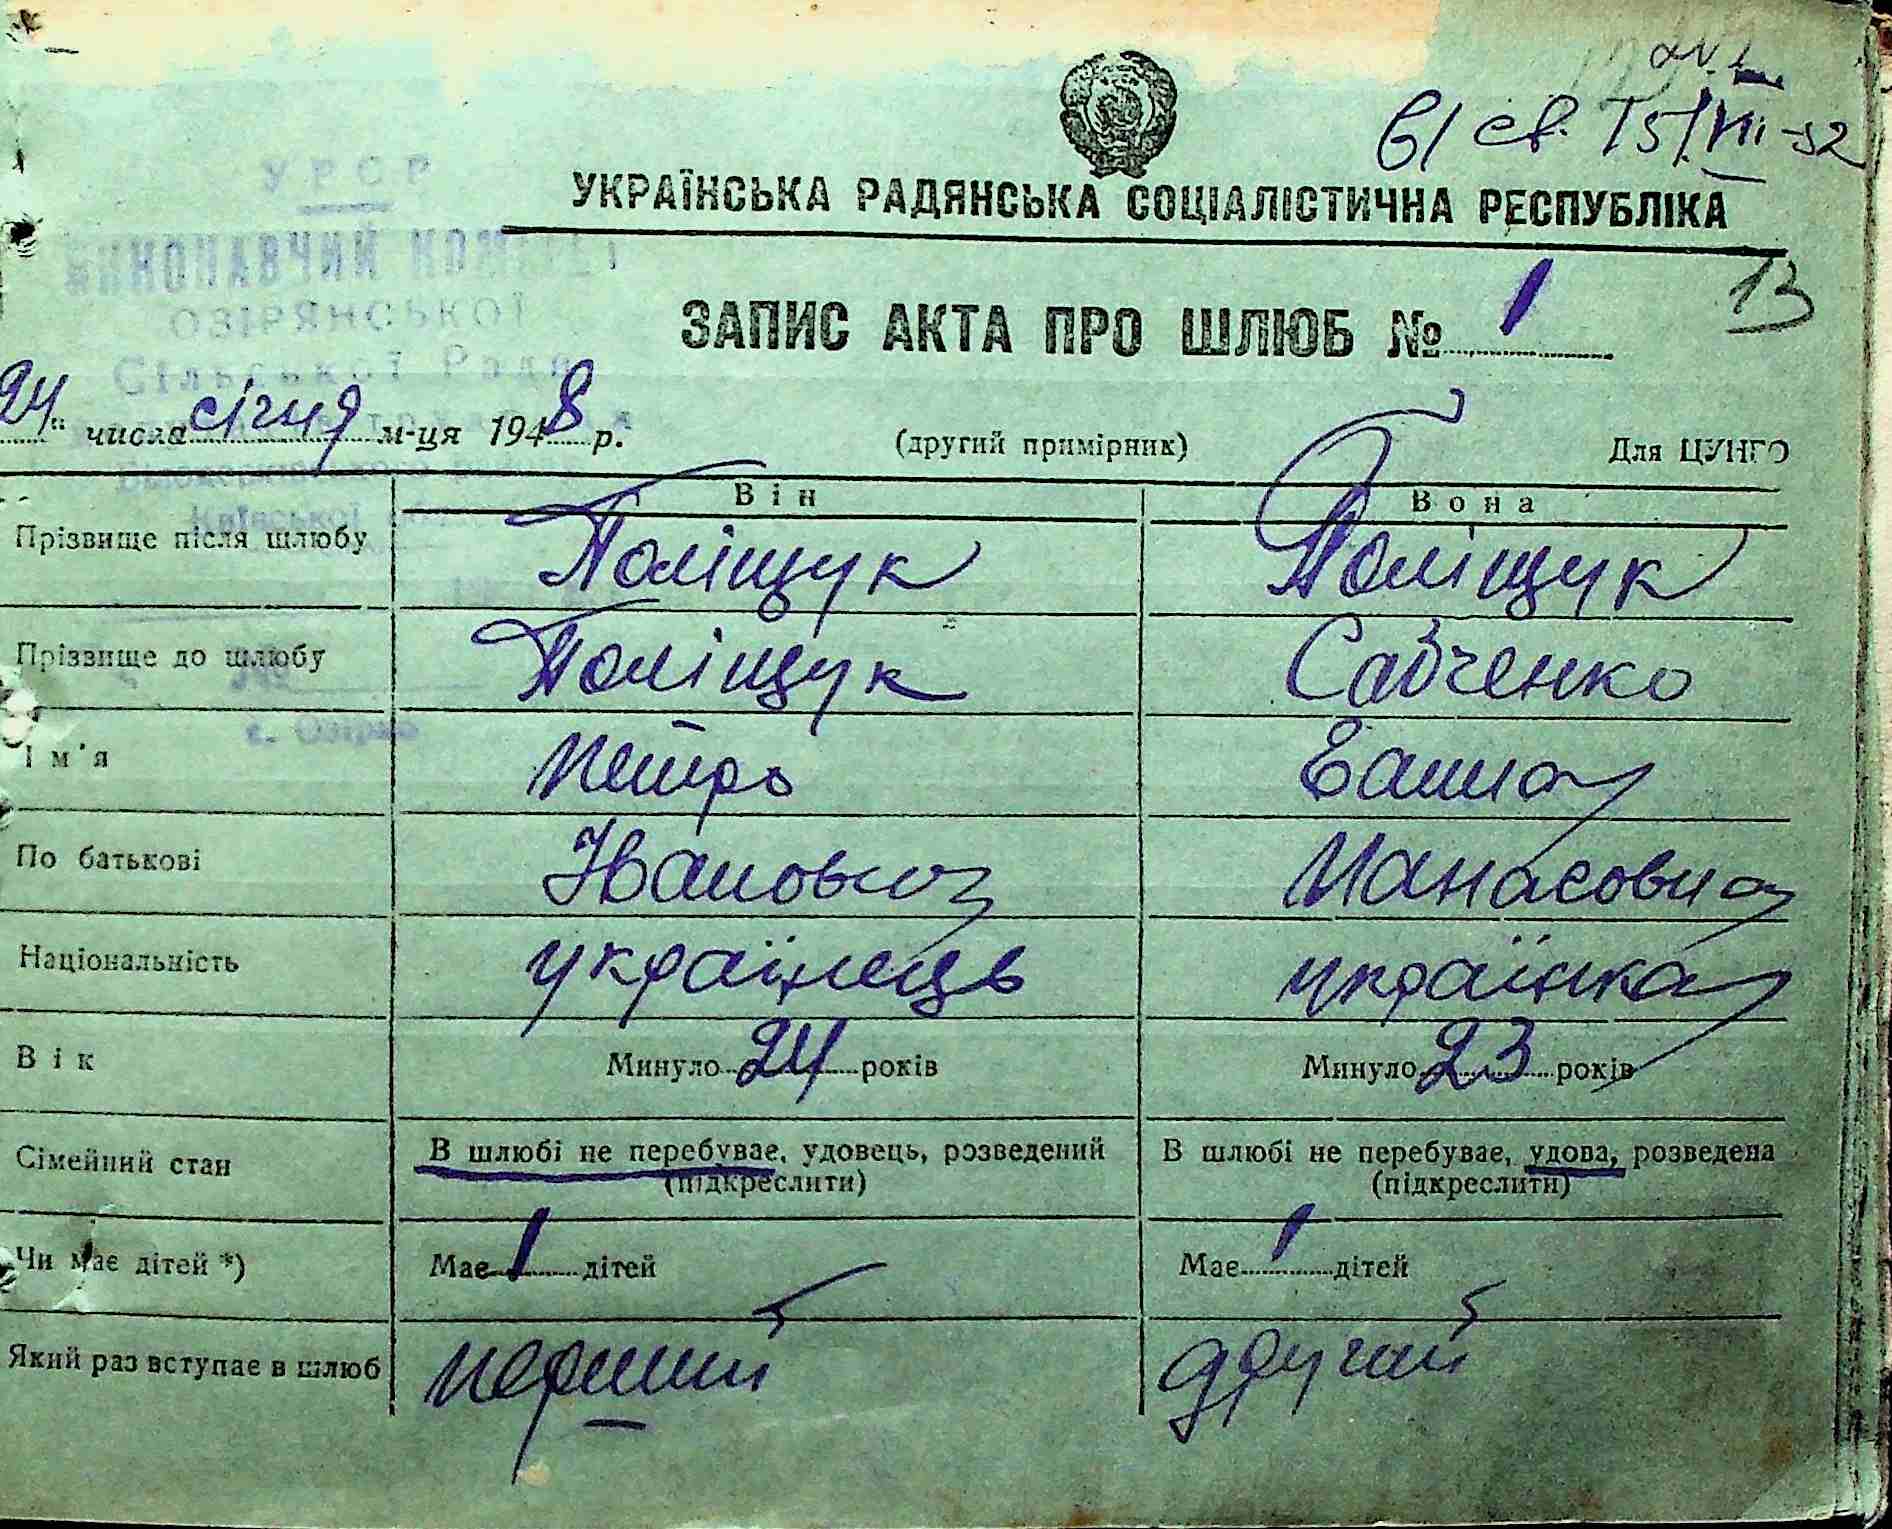 в/ св. 15/VII-52
УРСР
УКРАЇНСЬКА РАДЯНСЬКА СОЦІАЛІСТИЧНА РЕСПУБЛІКА
ВИКОНАВЧИЙ КОМІТЕТ
ОЗІРЯНСЬКОЇ
Сільської Ради
13
ЗАПИС АКТА ПРО ШЛЮБ № 1
24 " числа січня м-ця 1948 р.
(другий примірник)
Для ЦУНГО
Київської
Він
Вона
Прізвище після шлюбу Поліщук Поліщук
Прізвище до шлюбу Поліщук Савченко
№
с. Озірна
Ім'я Петро Ганна
По батькові Іванович Панасовна
Національність українець українка
Вік Минуло 24 років Минуло 23 років
Сімейний стан В шлюбі не перебуває, удовець, розведений В шлюбі не перебуває, удова, розведена
(підкреслити) (підкреслити)
Чи має дітей *) Має 1 дітей Має 1 дітей
Який раз вступає в шлюб перший другий